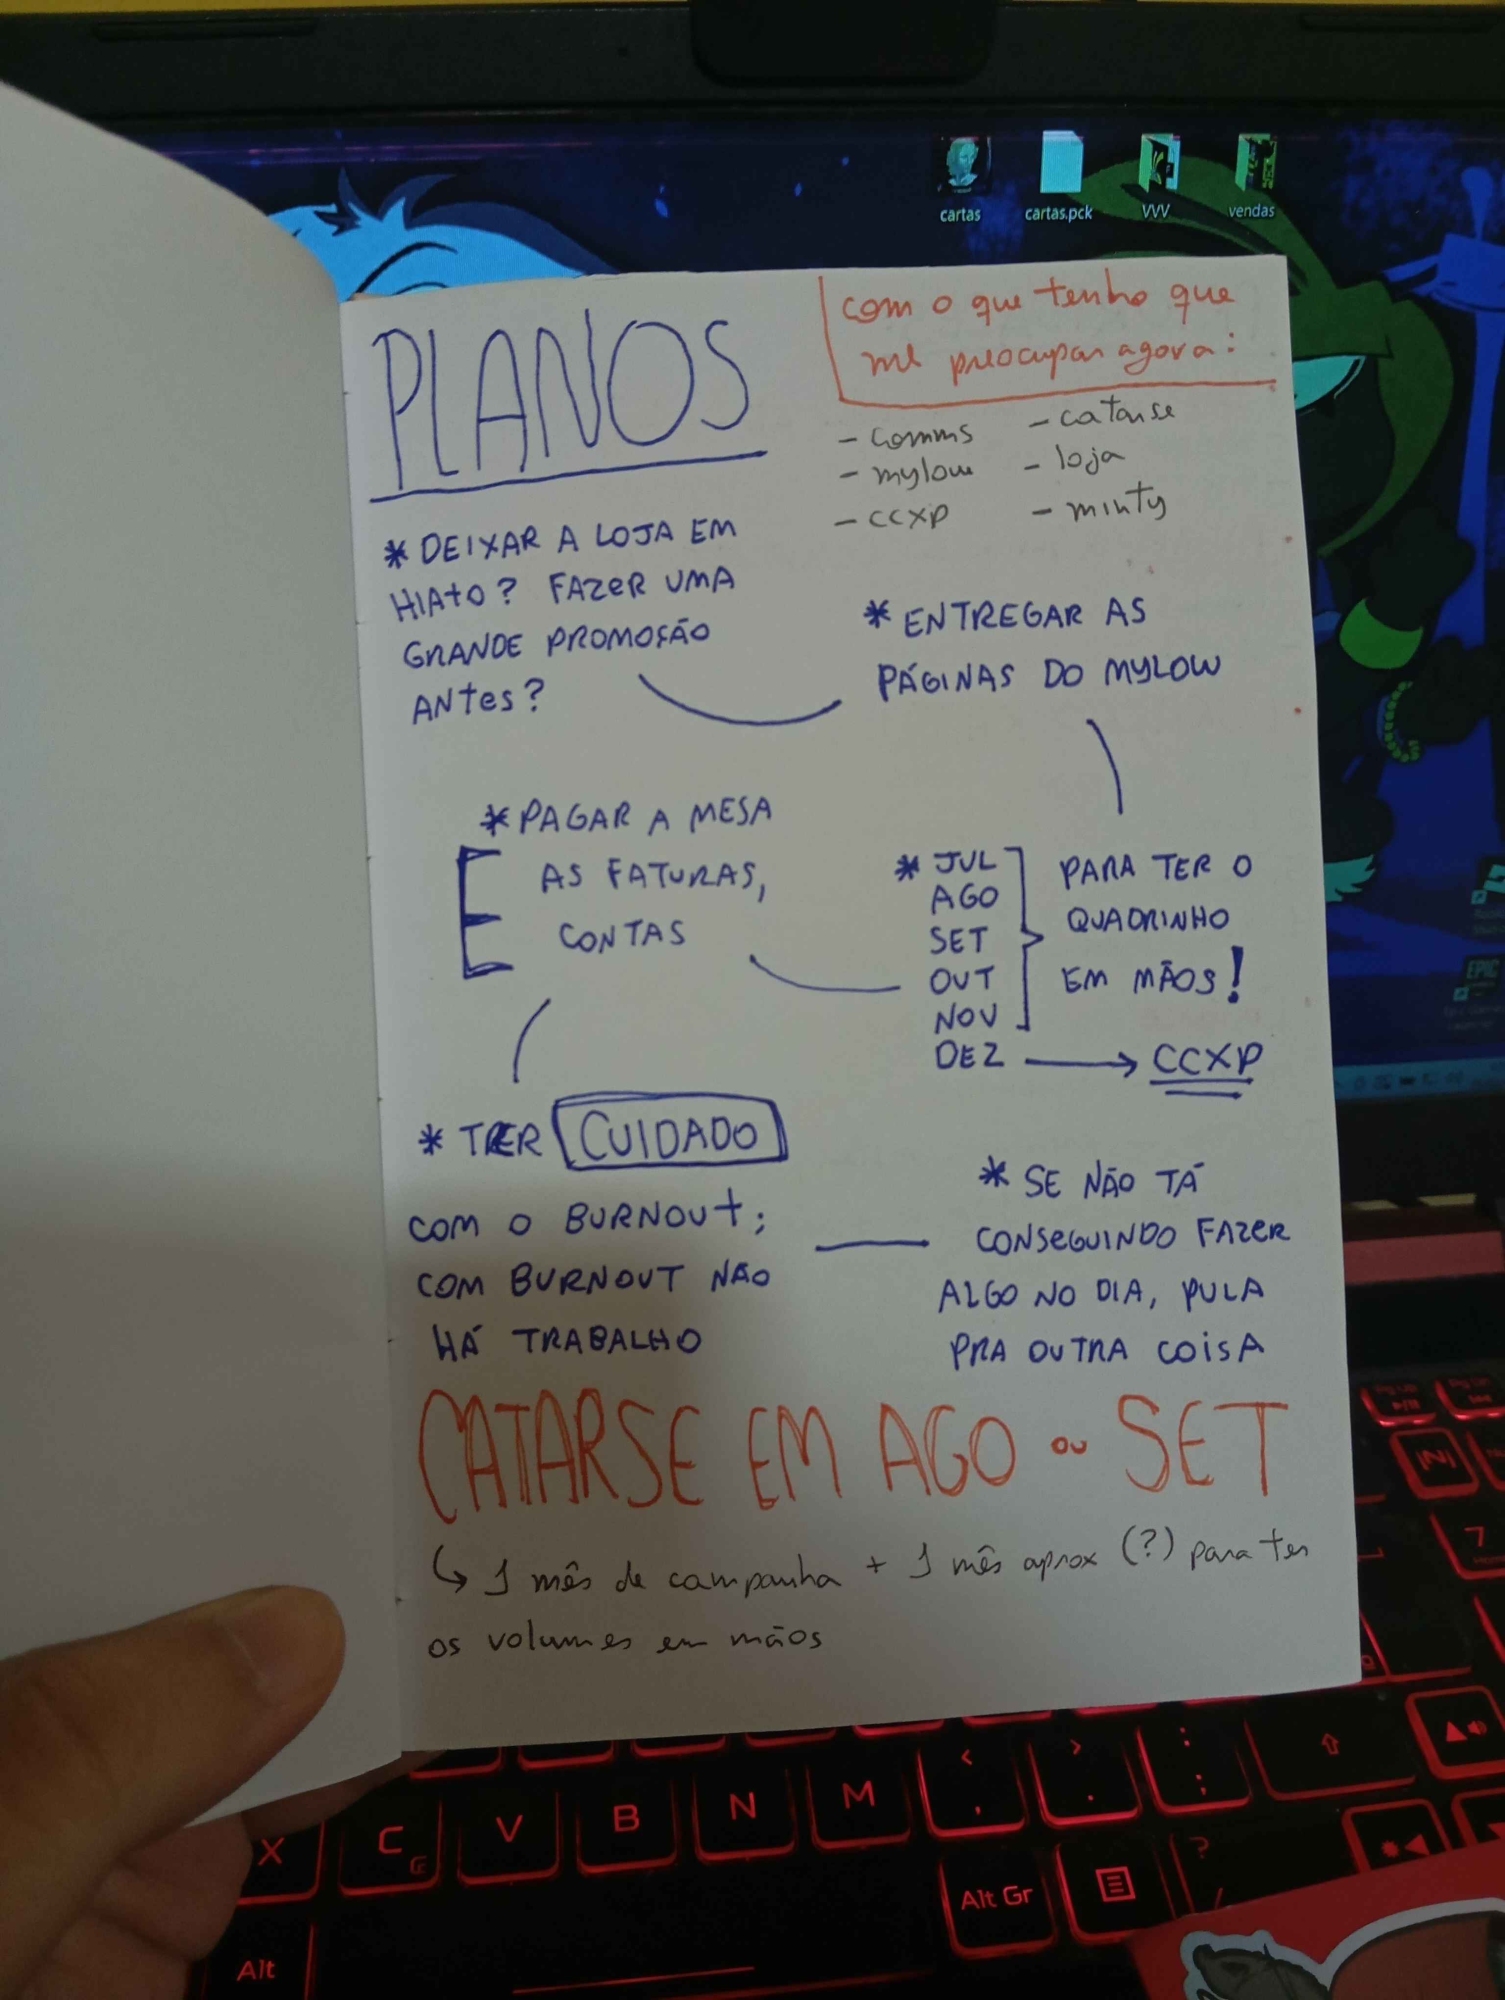 cartas
cartas.pck
VVV
vendas
PLANOS
com o que tenho que
me preocupar agora:
- comms
- mylow
- ccxp
- catarse
- loja
- minty
* DEIXAR A LOJA EM
HIATO? FAZER UMA
GRANDE PROMOÇÃO
ANTES?
* ENTREGAR AS
PÁGINAS DO MYLOW
* PAGAR A MESA
AS FATURAS,
CONTAS
* JUL
AGO
SET
OUT
NOV
DEZ → CCXP
PARA TER O
QUADRINHO
EM MÃOS!
* TER CUIDADO
COM O BURNOUT;
COM BURNOUT NÃO
HÁ TRABALHO
* SE NÃO TÁ
CONSEGUINDO FAZER
ALGO NO DIA, PULA
PRA OUTRA COISA
CATARSE EM AGO ou SET
↳ 1 mês de campanha + 1 mês aprox (?) para ter
os volumes em mãos
EPIC
7
X
C
V
B
N
M
<
,
>
.
:
;
?
/
Alt
Alt Gr